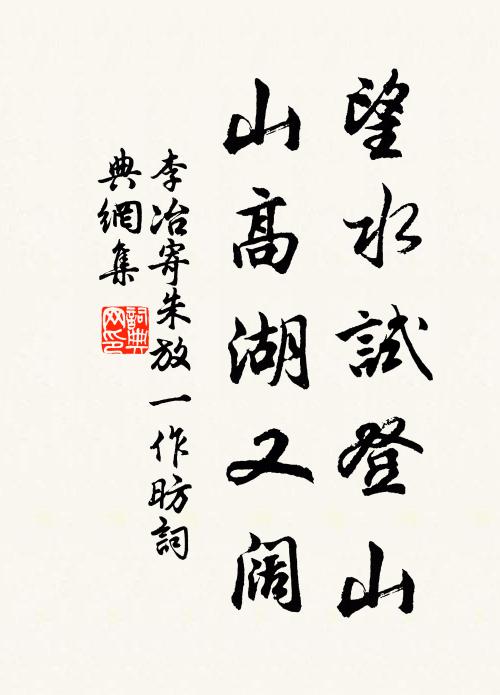 望水試登山
山高湖又阔
李冶寄朱放一作昉詞
典網集
詞典
网印